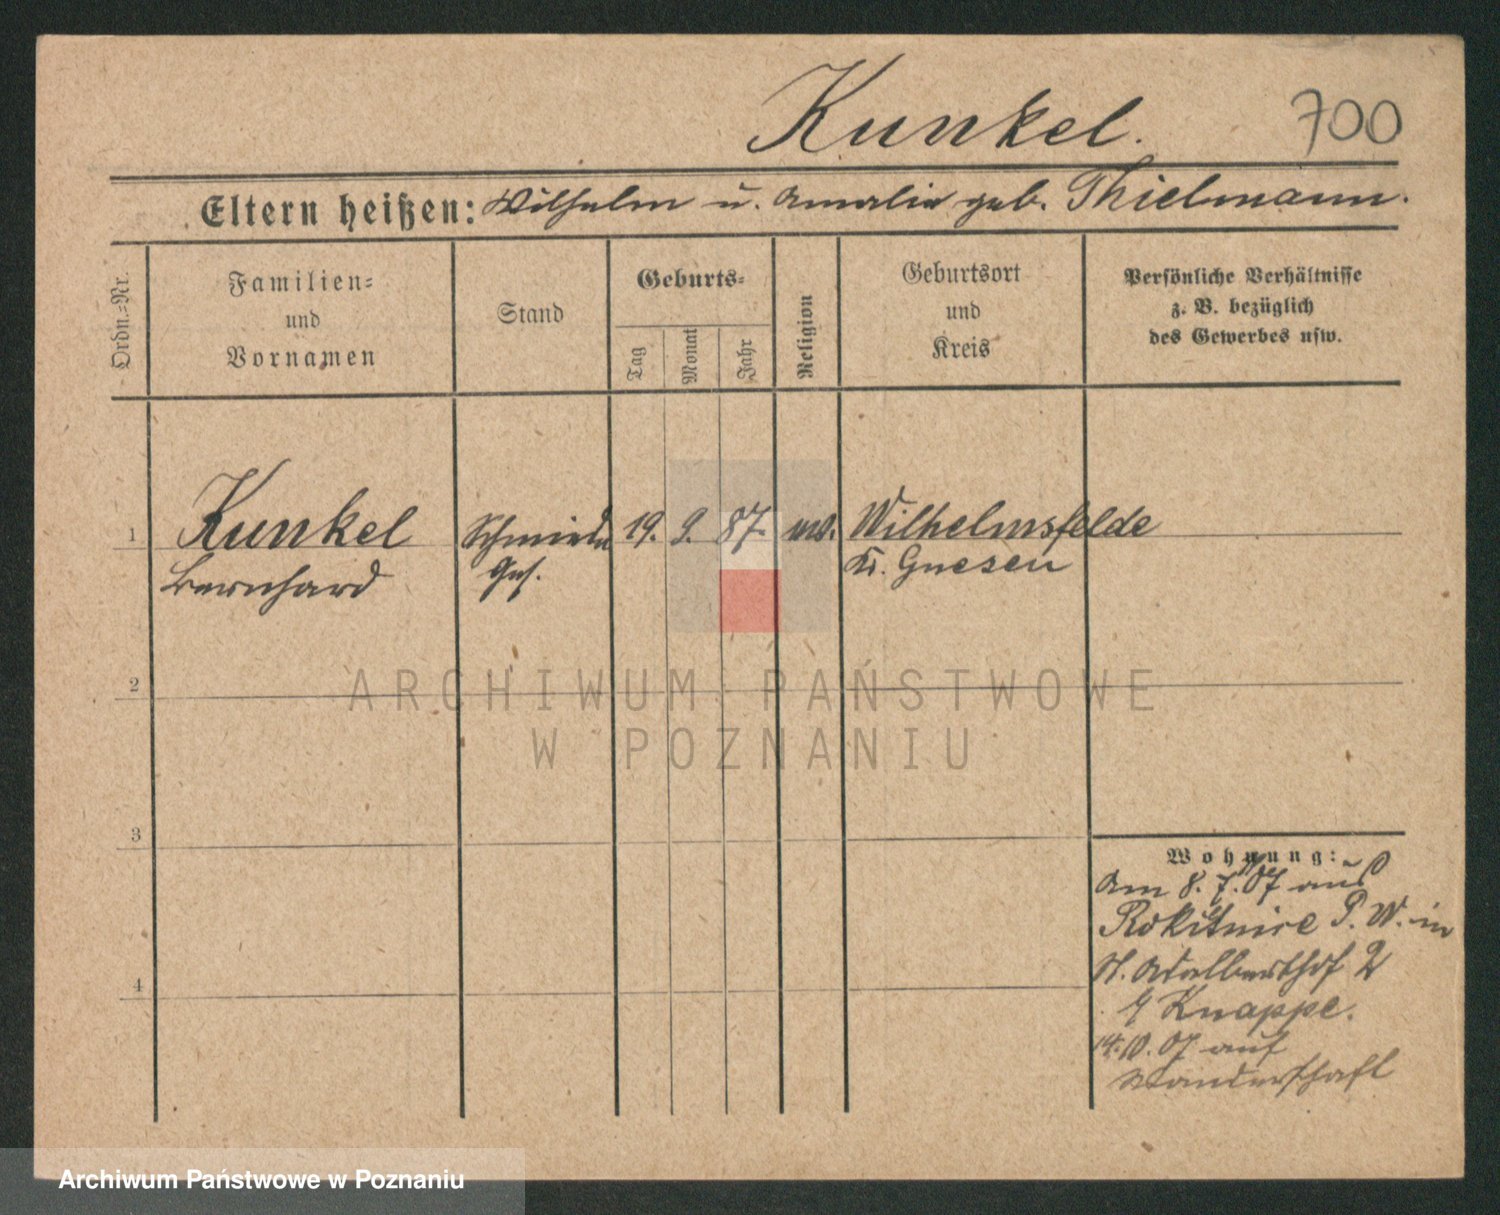 Kunkel.
700
Eltern heißen: Wilhelm u. Amalie geb. Thielmann.
Ordn.=Nr.
Familien=
und
Vornamen
Stand
Geburts=
Tag
Monat
Jahr
Religion
Geburtsort
und
Kreis
Persönliche Verhältnisse
z. B. bezüglich
des Gewerbes usw.
1
Kunkel
Bernhard
Schmiede
Ges.
19. 9. 87.
ev.
Wilhelmsfelde
Kr. Gnesen
2
3
4
Wohnung:
Am 8. 7. 07 aus
Rokitnice P. W. in
St. Adalberthof 2
b/ Knappe.
14. 10. 07 auf
Wanderschaft
ARCHIWUM PAŃSTWOWE
W POZNANIU
Archiwum Państwowe w Poznaniu